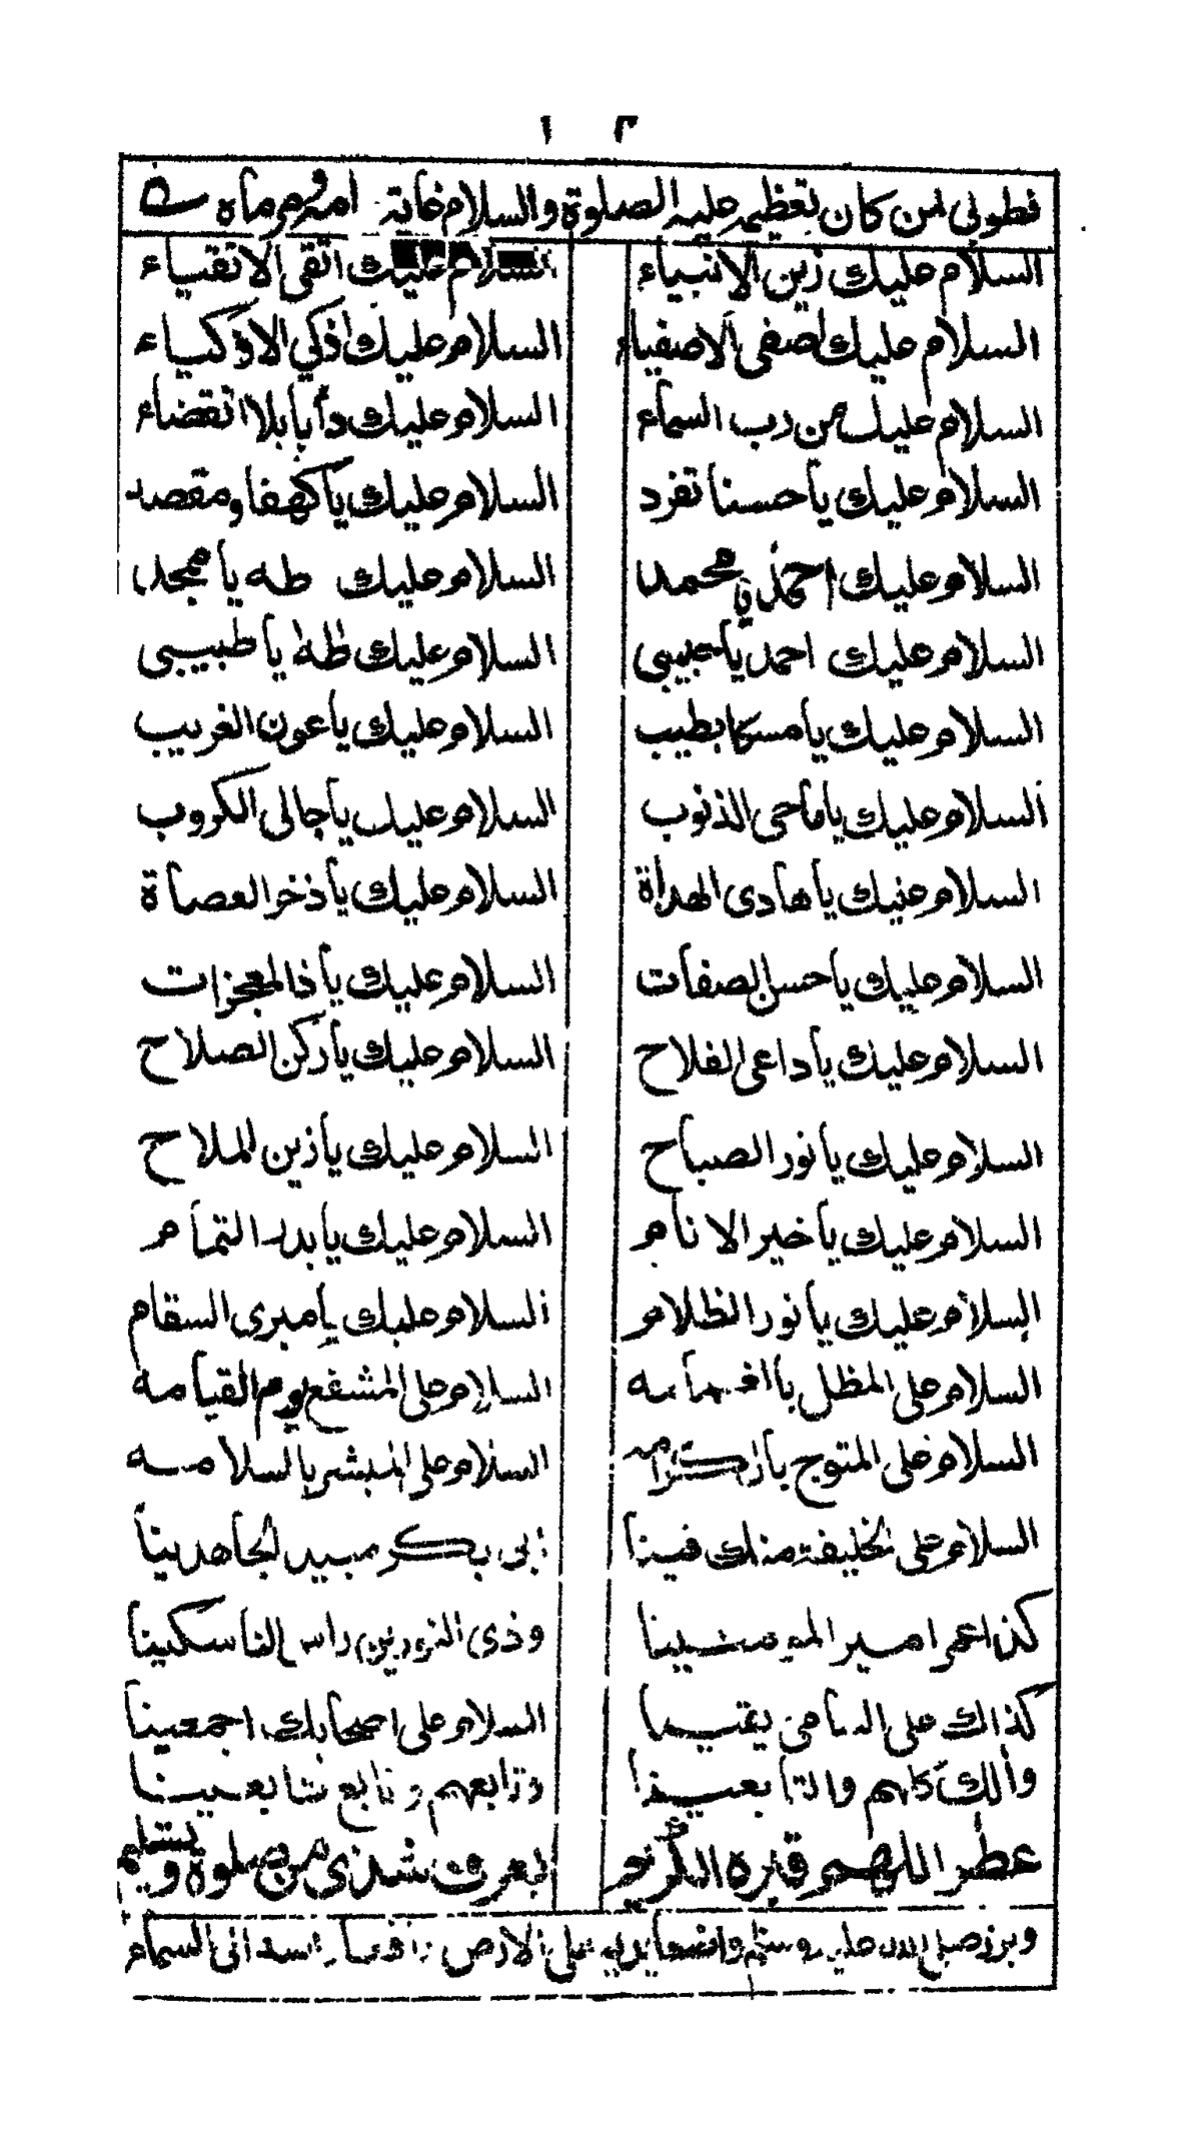 ١٢
فطوبى لمن كان تعظيمه عليه الصلوة والسلام غاية مرامه ومرماه
السلام عليك زين الانبياء السلام عليك اتقى الاتقياء
السلام عليك اصفى الاصفياء السلام عليك اذكى الاذكياء
السلام عليك من رب السماء السلام عليك دأبا بلا انقضاء
السلام عليك يا حسنا تفرد السلام عليك يا كهفا ومقصد
السلام عليك احمد يا محمد السلام عليك طه يا ممجد
السلام عليك احمد يا حبيبى السلام عليك طه يا طبيبى
السلام عليك يا مسكا بطيب السلام عليك يا عون الغريب
السلام عليك يا ماحى الذنوب السلام عليك يا جالى الكروب
السلام عليك يا هادى الهداة السلام عليك يا ذخر العصاة
السلام عليك يا حسن الصفات السلام عليك يا ذا المعجزات
السلام عليك يا داعى الفلاح السلام عليك يا ركن الصلاح
السلام عليك يا نور الصباح السلام عليك يا زين الملاح
السلام عليك يا خير الانام السلام عليك يا بدر التمام
السلام عليك يا نور الظلام السلام عليك يا مبرى السقام
السلام على المظلل بالغمامه السلام على المشفع يوم القيامه
السلام على المتوج بالكرامه السلام على المبشر بالسلامه
السلام على خليفة منك فينا ابى بكر مبيد الجاهدينا
كذا عمر امير المومنينا وذى النورين راس الناسكينا
كذاك على السامى يقينا السلام على اصحابك اجمعينا
وآلك كلهم والتابعينا وتابعهم وتابع تابعينا
عطر اللهم قبره الكريم بعرف شذى من صلوة وتسليم
وبرز صلى الله عليه وسلم واضعا يديه على الارض رافعا راسه الى السماء